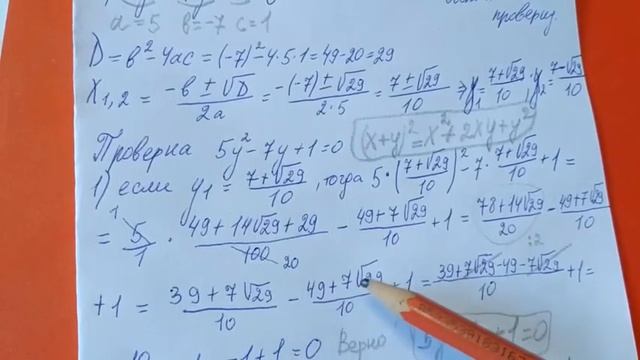 a = 5 b = -7 c = 1
проверку.
D = b² - 4ac = (-7)² - 4·5·1 = 49 - 20 = 29
X₁,₂ = (-b ± √D)/2a = (-(-7) ± √29)/(2·5) = (7 ± √29)/10 ⇒ y₁ = (7+√29)/10, y₂ = (7-√29)/10
(x+y)² = x² + 2xy + y²
Проверка 5y² - 7y + 1 = 0
1) если y₁ = (7+√29)/10, тогда 5·((7+√29)/10)² - 7·(7+√29)/10 + 1 =
= 5/1 · (49 + 14√29 + 29)/100 - (49 + 7√29)/10 + 1 = (78 + 14√29)/20 - (49 + 7√29)/10
1 20 :2
+ 1 = (39 + 7√29)/10 - (49 + 7√29)/10 + 1 = (39 + 7√29 - 49 - 7√29)/10 + 1 =
-1 + 1 = 0 Верно +1 = 0